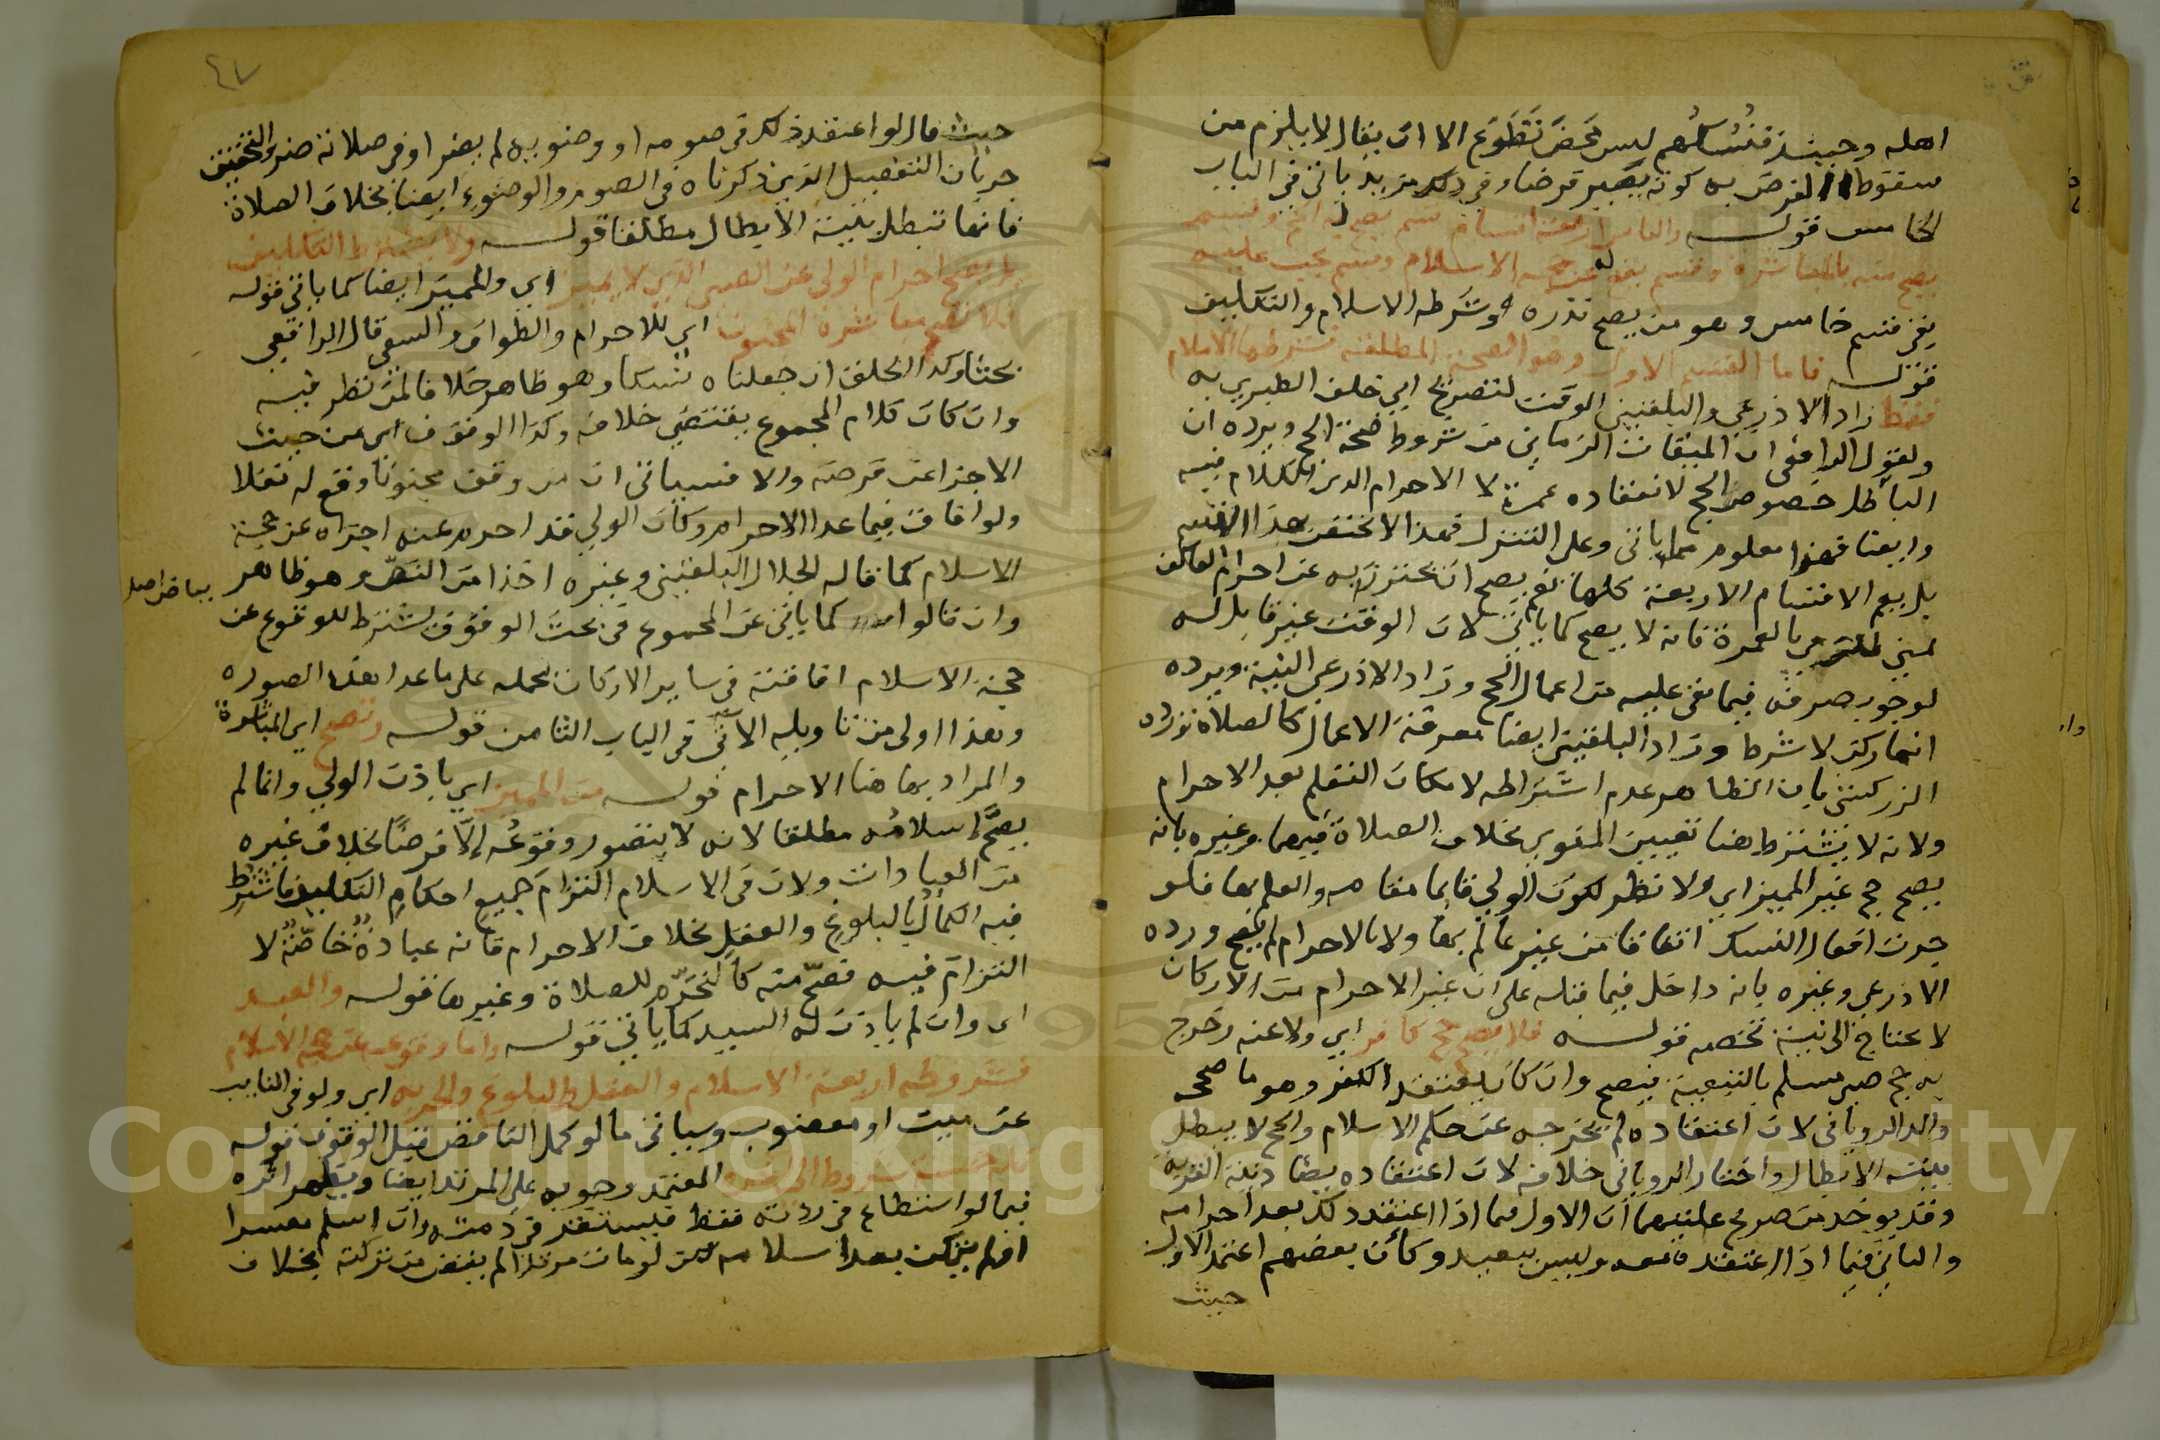 اهله وحينئذ فنُسُكُهم ليس مَحْضَ تَطَوُّع الا ان يقال لا يلزم من
سقوط الفرض به كونه يصير فرضا وفي ذلك مزيد ياتي في الباب
الخامس قوله والناس اربعة اقسام قسم يصح له الحج وقسم
يصح منه بالمباشرة وقسم يقع له عن حجة الاسلام وقسم يجب عليه
بقي قسم خامس وهو من يصح نذره وشرطه الاسلام والتكليف
قوله فاما القسم الاول وهو الصحة المطلقة فشرطها الاسلام
فقط زاد الاذرعي والبلقيني الوقت لتصريح ابي خلف الطبري به
ولقول الرافعي ان الميقات الزماني من شروط صحة الحج ويرده ان
الباطل خصوص الحج لانعقاده عمرة لا الاحرام الذي الكلام فيه
وايضا فهذا معلوم مما ياتي وعلى التنزل فهذا لا يختص بهذا القسم
بل يعم الاقسام الاربعة كلها نعم يصح ان يحترز به عن احرام العاكف
بمنى للنفر بالعمرة فانه لا يصح كما ياتي لان الوقت غير قابل له
لوجوب صرفه فيما بقي عليه من اعمال الحج وزاد الاذرعي النية ويرده
انها ركن لا شرط وزاد البلقيني ايضا معرفة الاعمال كالصلاة ورده
الزركشي بان الظاهر عدم اشتراطه لامكان التعلم بعد الاحرام
ولانه لا يشترط هنا تعيين المنوي بخلاف الصلاة فيهما وغيره بانه
يصح حج غير المميز اي ولا نظر لكون الولي قايما مقامه والعلم بها فلو
جرت افعال النسك اتفاقا من غير عالم بها ولا بالاحرام لم يصح ورده
الاذرعي وغيره بانه داخل فيما قبله على ان غير الاحرام من الاركان
لا يحتاج الى نية تخصه قوله فلا يصح حج كافر اي ولا عنه وخرج
به حج صبي مسلم بالتبعية فيصح وان كان يعتقد الكفر وهو ما صححه
والد الروياني لان اعتقاده لم يخرجه عن حكم الاسلام والحج لا يبطل
بنية الابطال واختار الروياني خلافه لان اعتقاده يضاد نية القربة
وقد يوخذ من صريح علتيهما ان الاول فيما اذا اعتقد ذلك بعد احرامه
والثاني فيما اذا اعتقده معه وليس ببعيد وكأن بعضهم اعتمد الاول
حيث
٤٧
حيث قال لو اعتقد ذلك في صومه او وضويه لم يضر او في صلاته ضر والتحقيق
جريان التفصيل الذي ذكرناه في الصوم والوضوء ايضا بخلاف الصلاة
فانها تبطل بنية الابطال مطلقا قوله ولا يشترط التكليف
بل يصح احرام الولي عن الصبي الذي لا يميز اي والمميز ايضا كما ياتي قوله
فلا تصح مباشرة المجنون اي للاحرام والطواف والسعي قال الرافعي
بحثا وكذا الحلق ان جعلناه نسكا وهو ظاهر خلافا لمن نظر فيه
وان كان كلام المجموع يقتضي خلافه وكذا الوقوف اي من حيث
الاجزا عن فرضه والا فسياتي ان من وقف مجنونا وقع له نفلا
ولو افاق فيما عدا الاحرام وكان الولي قد احرم عنه اجزاه عن حجة
الاسلام كما قاله الجلال البلقيني وغيره اخذا من النص وهو ظاهر
بياض اصل
وان قالوا كما ياتي عن المجموع في بحث الوقوف يشترط للوقوع عن
حجة الاسلام افاقته في ساير الاركان بحمله على ما عدا هذه الصوره
وهذا اولى من تاويله الاتي في الباب الثامن قوله وتصح اي المباشرة
والمراد بها هنا الاحرام قوله من المميز اي باذن الولي وانما لم
يصحَّ اسلامُه مطلقا لانه لا يتصور وقوعُه إلّا فرضًا بخلاف غيره
من العبادات ولان في الاسلام التزامَ جميع احكام التكليف فاشترط
فيه الكمال بالبلوغ والعقل بخلاف الاحرام فانه عبادةٌ خاصّةٌ لا
التزام فيه فصحّ منه كالتحرّم للصلاة وغيرها قوله والعبد
اى وان لم ياذن له السيد كما ياتي قوله واما وقوعه عن حجة الاسلام
فشروطه اربعة الاسلام والعقل والبلوغ والحريه اي ولو في النايب
عن ميت او معضوب وسياتي ما لو كمل الناقص قبل الوقوف قوله
المعتمد وجوبه على المرتد ايضا ويظهر اثره
فيما لو استطاع في ردته فقط فيستقر في ذمته وان اسلم معسرا
او لم يتمكن بعد اسلامه لكن لو مات مرتدا لم يقض من تركته بخلاف